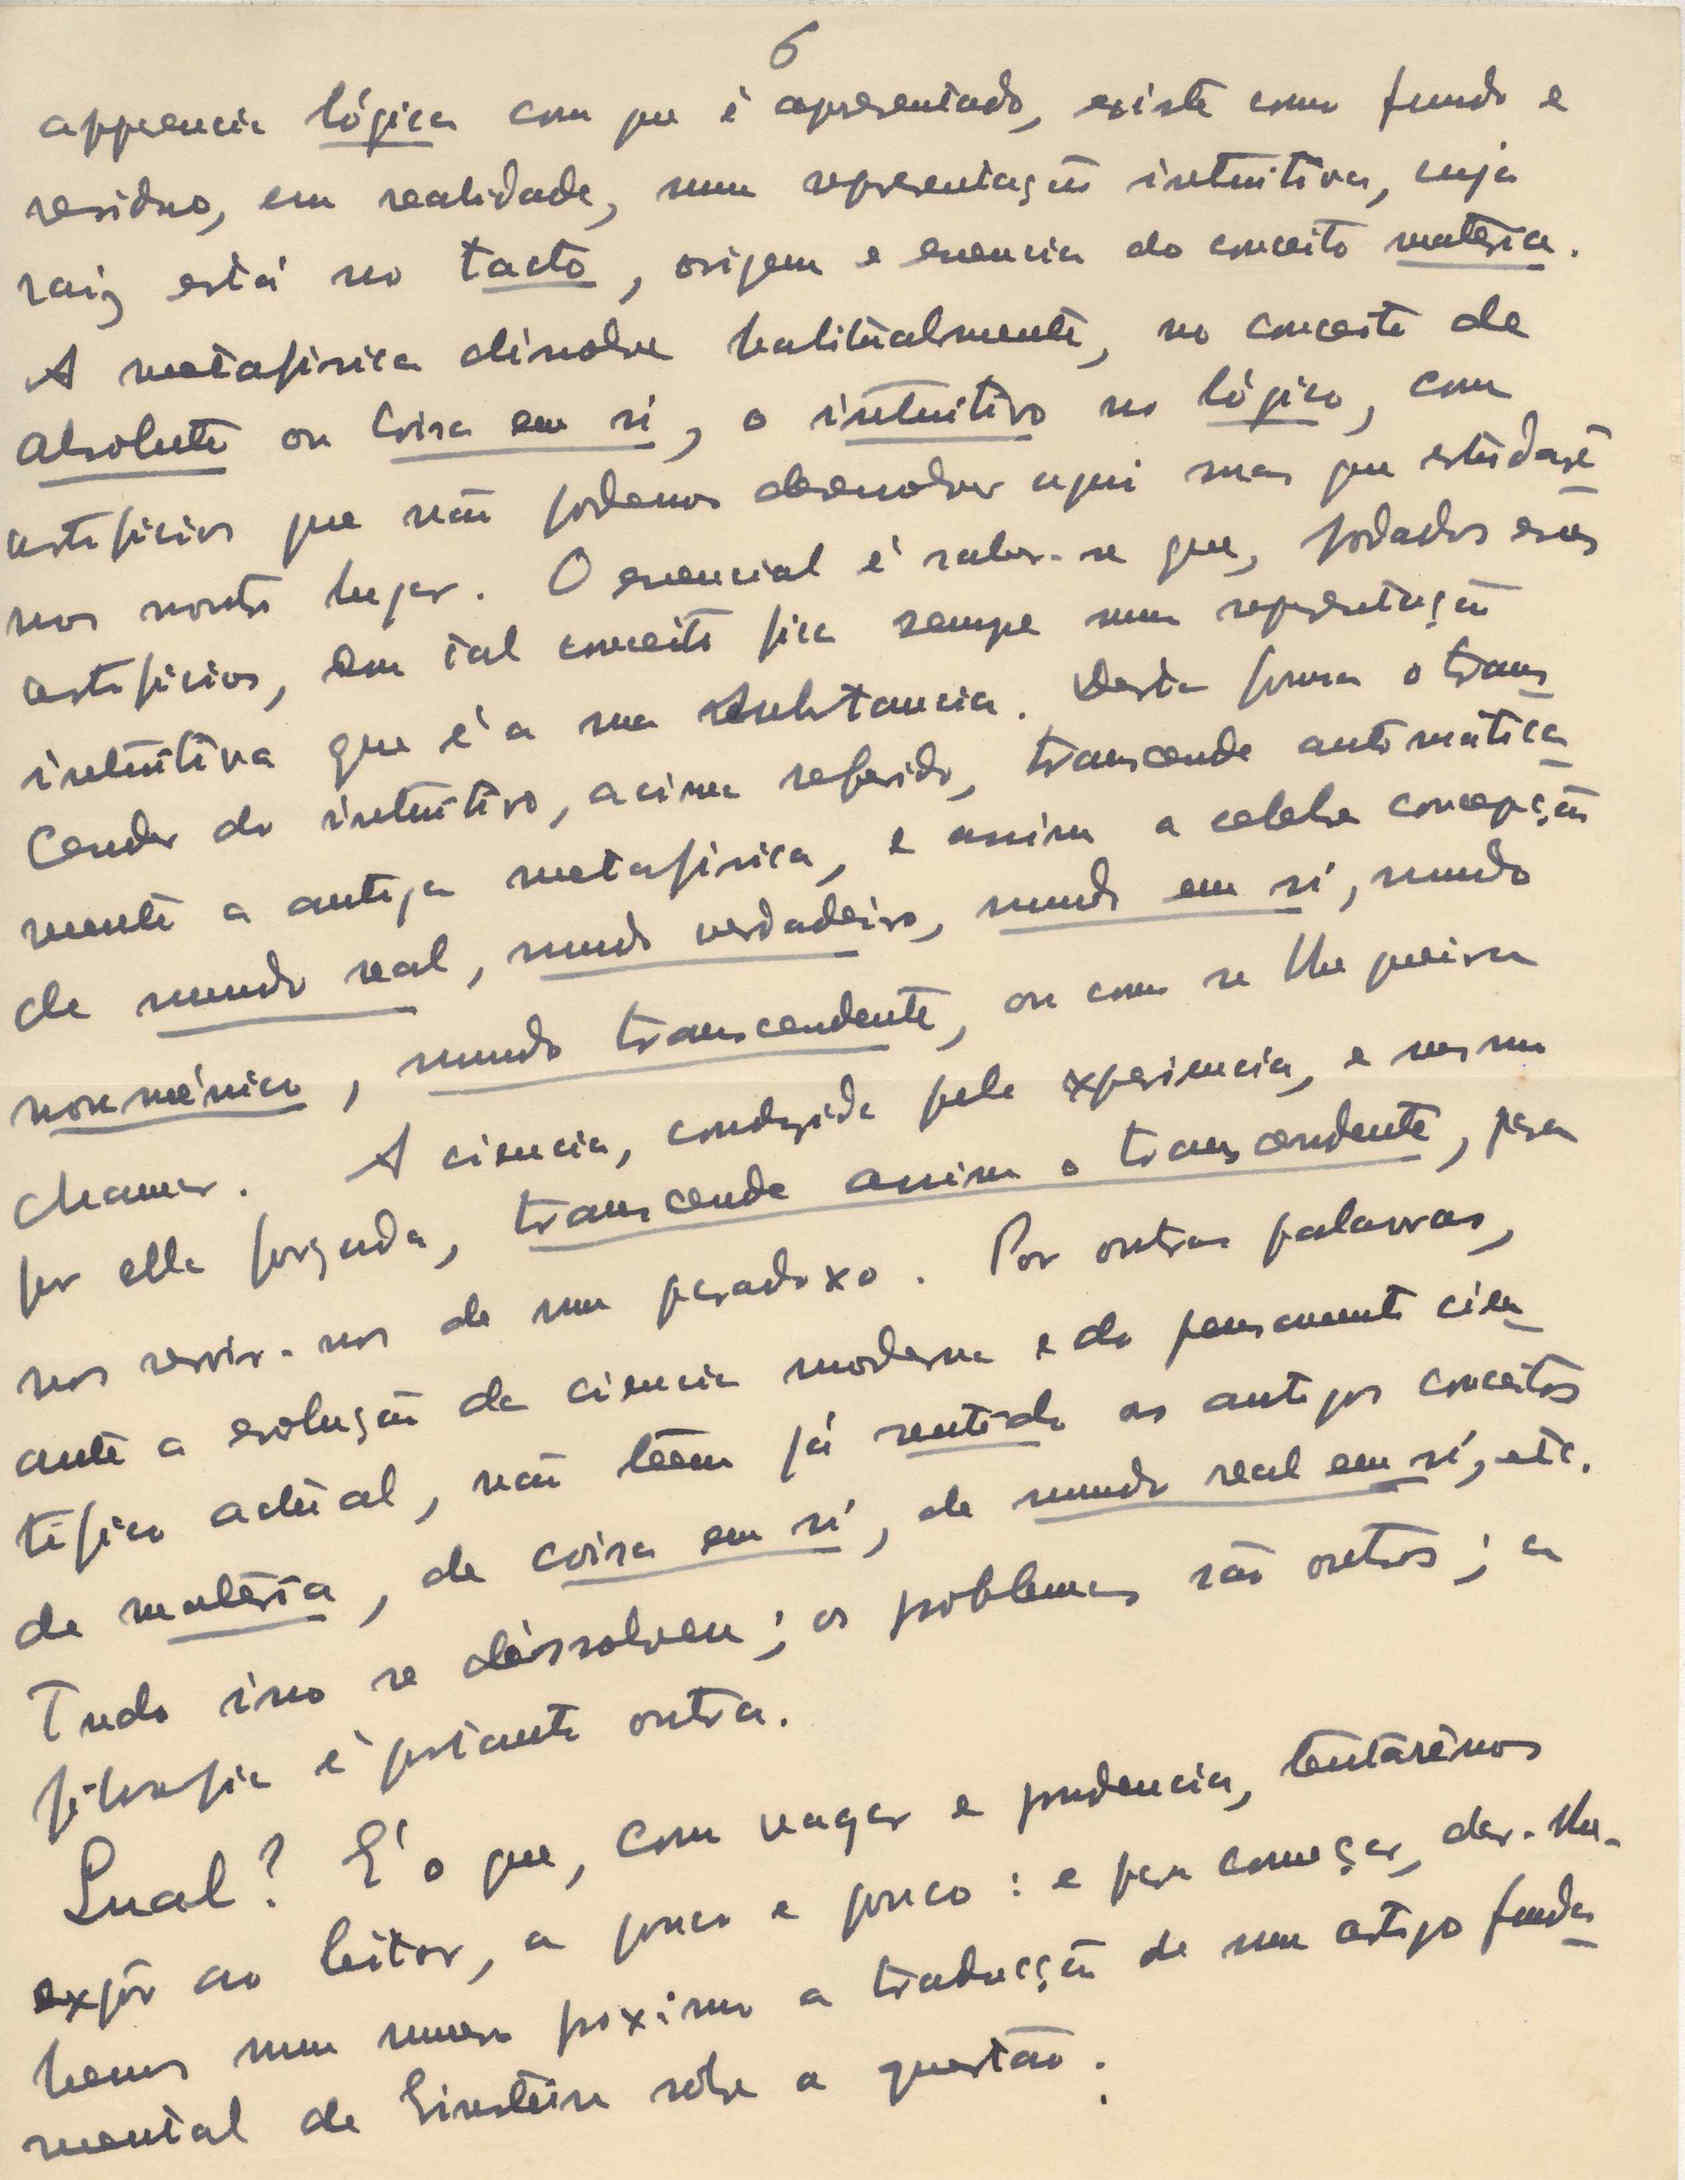 6
apparencia lógica com que é apresentado, existe como fundo e
residuo, em realidade, uma representação intuitiva, cuja
raiz está no tacto, origem e essencia do conceito matéria.
A metafisica dissolve habitualmente, no conceito de
absoluto ou coisa em si, o intuitivo no lógico, com
artificios que não podemos desenvolver aqui mas que estudare
mos noutro lugar. O essencial é saber-se que, podados esses
artificios, em tal conceito fica sempre uma representação
intuitiva que é a sua substancia. Desta forma o trans
cender do intuitivo, acima referido, transcende automatica
mente a antiga metafisica, e assim a celebre concepção
de mundo real, mundo verdadeiro, mundo em si, mundo
nouménico, mundo transcendente, ou como se lhe queira
chamar. A ciencia, conduzida pela experiencia, e mesmo
por ella forçada, transcende assim o transcendente, para
nos servir-mos de um paradoxo. Por outras palavras,
ante a evolução da ciencia moderna e do pensamento cien
tifico actual, não têem já sentido os antigos conceitos
de matéria, de coisa em si, de mundo real em si, etc.
Tudo isso se dissolveu; os problemas são outros; a
filosofia é portanto outra.
Qual? É o que, com vagar e prudencia, tentarêmos
expôr ao leitor, a pouco e pouco: e para começar, dar-lhe-
hemos num numero proximo a traducção de um artigo funda
mental de Einstein sôbre a questão.